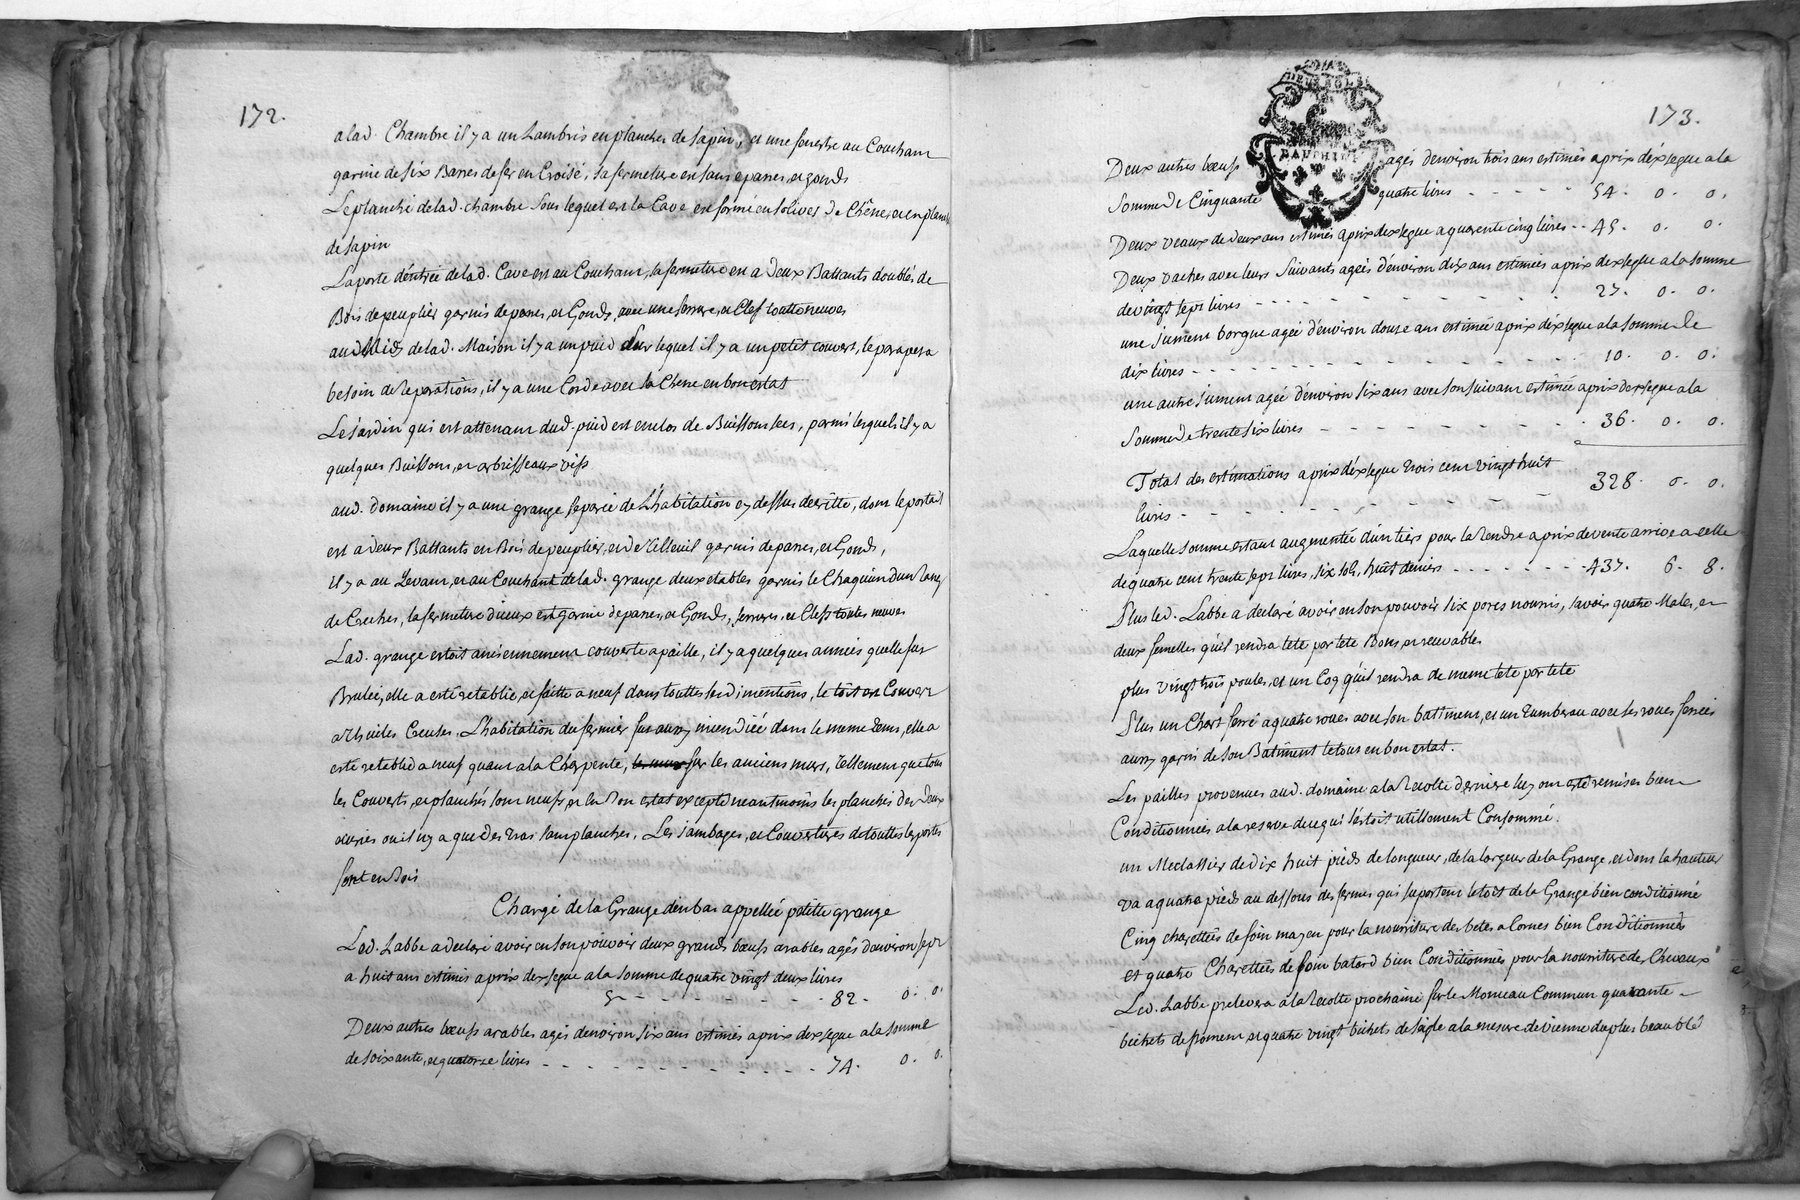 172.
alad. Chambre il y a un Lambris en planches de sapin, et une fenestre au Couchant
garnie de six Barres de fer en Croisé, sa fermeture en sans epares, et gonds
Le planché delad. chambre sous lequel est la Cave est formé en solives de Chêne, et en planches
de sapin
La porte d'entrée delad. Cave est au Couchant, la fermeture en a deux Battants doublés de
Bois de peuplier garnis de panes, et Gonds, avec une serrure, et Clef toutte neuves
au Midy delad. Maison il y a un puid sur lequel il y a un petit couvert, le parapet a
besoin de reparations, il y a une Corde avec sa Chene en bon estat
Le jardin qui est attenant dud. puid est enclos de Buissons secs, parmi lesquels il y a
quelques Buissons, et arbrisseaux vifs
aud. domaine il y a une grange separée de L'habitation cy dessus decritte, dont le portail
est a deux Battants en Bois de peuplier, et de Tilleuil garnis de panes, et Gonds,
il y a au Levant, et au Couchant delad. grange deux etables garnis le Chaquun d'un Rang
de Creches, la fermeture d'iceux est garnie de panes, et Gonds, serrures, et Clefs toutes neuves
Lad. grange estoit anciennement couverte a paille, il y a quelques années quelle fut
Brulée, elle a esté retablie, et faitte a neuf dans touttes ses dimentions, le toit est Couvert
a Thuiles Creuses. L'habitation du fermier fut aussy incendiée dans le meme tems, elle a
esté retablie a neuf quant a la Cherpente, sur les anciens murs, Tellement que tous
les Couverts, et planchés sont neufs, et en Bon estat excepté neantmoins les planchés des deux
ecuries ou il n'y a que des tras sans planches. Les jambages, et Couvertures de touttes les portes
sont en Bois
Charge de la Grange d'en bas appellée petitte grange
Led. Labbe a declaré avoir en son pouvoir deux grands bœufs arables agés d'environ sept
a huit ans estimés a prix d'exsegue a la somme de quatre vingt deux livres
cy - - - - - - - - - 82. 0. 0.
Deux autres bœufs arables agés d'environ six ans estimés a prix d'exsegue a la somme
de soixante, et quatorze livres - - - - - - - - - - 74. 0. 0.
173.
DAUPHINÉ
Deux autres bœufs agés d'environ trois ans estimés a prix d'exsegue a la
somme de Cinquante quatre livres - - - - - - 54. 0. 0.
Deux veaux de deux ans estimés a prix d'exsegue a quarente cinq livres - - 45. 0. 0.
Deux vaches avec leurs Suivants agées d'environ dix ans estimées a prix d'exsegue a la somme
de vingt sept livres - - - - - - - - - - 27. 0. 0.
une jument borgne agée d'environ douze ans estimée a prix d'exsegue a la somme de
dix livres - - - - - - - - - - - 10. 0. 0.
une autre jument agée d'environ six ans avec son suivant estimée a prix d'exsegue a la
somme de trente six livres - - - - - - - - - 36. 0. 0.
Total des estimations a prix d'exsegue trois cent vingt huit
livres - - - - - - - - - 328. 0. 0.
Laquelle somme estant augmentée d'un tiers pour la rendre a prix de vente arrive a celle
de quatre cent trente sept livres, six sols, huit deniers - - - - - - - - 437. 6. 8.
Plus led. Labbe a declaré avoir en son pouvoir six porcs nourris, savoir quatre Males, et
deux femelles qu'il rendra tete par tete Bons, et recevables
plus vingt trois poules, et un Coq qu'il rendra de meme tete par tete
Plus un Chart ferré a quatre roues avec son batiment, et un Tumbereau avec ses roues ferrées
aussy garni de son Batiment le tous en bon estat.
Les pailles provenues aud. domaine a la Recolte derniere luy ont esté remises bien
Conditionnées a la reserve de ce qui s'estoit utillement Consommé.
un Meclassier de dix huit pieds de longueur, de la largeur de la Grange, et dont la hauteur
va a quatre pieds au dessous des fermes qui suportent le toit de la Grange bien conditionné
Cinq charettées de foin mayen pour la nourriture des betes a Cornes bien Conditionnées
et quatre Charettées de foin batard bien Conditionnées pour la nourriture des Chevaux
Led. Labbe prelevera a la Recolte prochaine sur le Monceau Commun quarante
bichets de froment et quatre vingt bichets de seigle a la mesure de vienne du plus beau bled